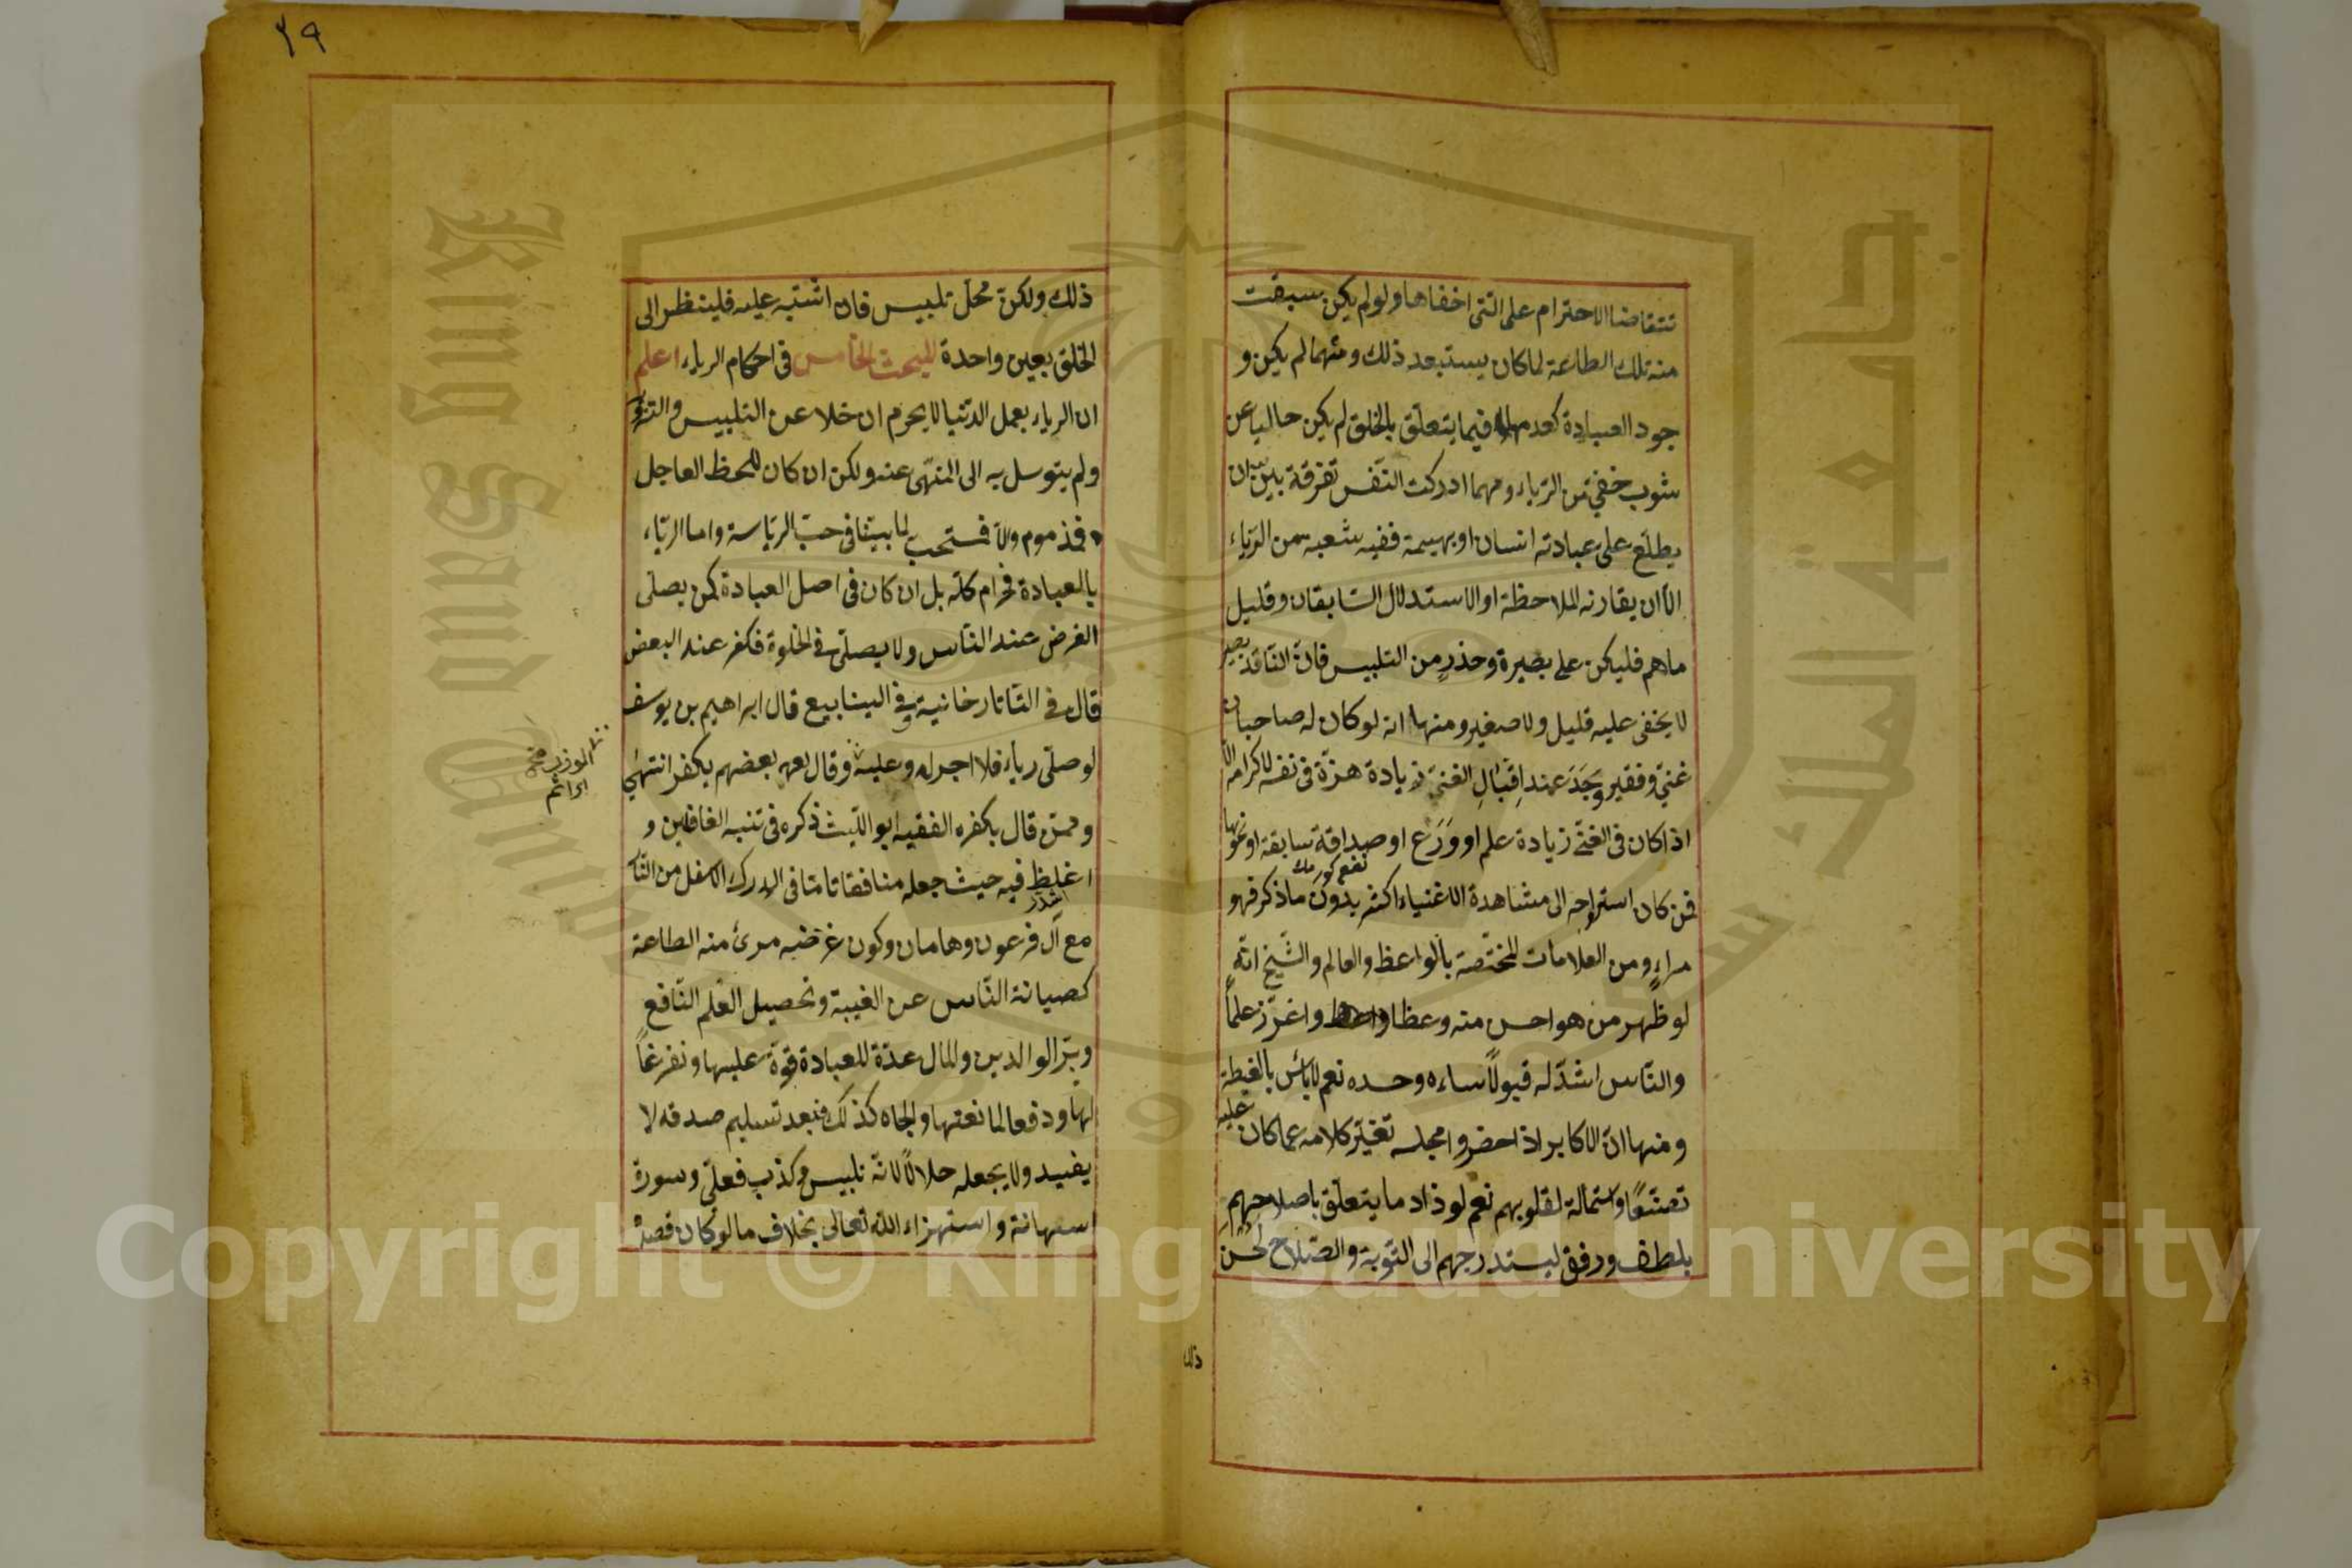 تتقاضا الاحترام على التى اخفاها ولو لم يكن سبقت
منه تلك الطاعة لما كان يستبعد ذلك ومهما لم يكن و
جود العبادة كعدمها فيما يتعلق بالخلق لم يكن خاليا عن
شوب خفي من الرياء ومهما ادركت النفس تفرقة بين ان
يطلع على عبادته انسان او بهيمة ففيه شعبة من الرياء
الا ان يقارنه الملاحظة او الاستدلال السابقان وقليل
ماهم فليكن على بصيرة وحذر من التلبيس فان الناقد بصير
لا يخفى عليه قليل ولا صغير ومنها انه لو كان له صاحبان
غني وفقير وجد عند اقبال الغني زيادة هزة في نفسه لاكرامه الا
اذا كان في الغني زيادة علم او ورع او صداقة سابقة او نحوها
فمن كان استراحه الى مشاهدة الاغنياء اكثر بدون ما ذكر فهو
مراء ومن العلامات المختصة بالواعظ والعالم والشيخ انه
لو ظهر من هو احسن منه وعظا واغزر علما
والناس اشد له قبولا ساءه وحسده نعم لا بأس بالغبطة
ومنها ان الاكابر اذا حضروا مجلسه تغير كلامه عما كان عليه
تصنعا واستمالة لقلوبهم نعم لو ذاد ما يتعلق باصلاحهم
بلطف ورفق ليستدرجهم الى التوبة والصلاح لحسن
ذلك
٢٩
ذلك ولكن محل تلبيس فان اشتبه عليه فلينظر الى
الخلق بعين واحدة المبحث الخامس في احكام الرياء اعلم
ان الرياء بعمل الدنيا لا يحرم ان خلا عن التلبيس والتزوير
ولم يتوسل به الى المنهى عنه ولكن ان كان للحظ العاجل
فمذموم والا فمستحب لما بينا في حب الرياسة واما الرياء
بالعبادة فحرام كله بل ان كان في اصل العبادة كمن يصلى
الفرض عند الناس ولا يصلى في الخلوة فكفر عند البعض
قال في التاتارخانية وفي الينابيع قال ابراهيم بن يوسف
لو صلى رياء فلا اجر له وعليه وقال بعضهم يكفر انتهى
وممن قال بكفره الفقيه ابو الليث ذكره في تنبيه الغافلين و
اغلظ فيه حيث جعله منافقا تاما في الدرك الاسفل من النار
مع آل فرعون وهامان وكون غرضه مرئ منه الطاعة
كصيانة الناس عن الغيبة وتحصيل العلم النافع
وبر الوالدين والمال عدة للعبادة قوة عليها وتفرغا
لها ودفعا لمانعتها والجاه كذلك فبعد تسليم صدقه لا
يفيد ولا يجعله حلالا لانه تلبيس وكذب فعلى وسورة
استهانة واستهزاء الله تعالى بخلاف ما لو كان قصده
Copyright © King Saud University
King Saud University
جامعة الملك سعود